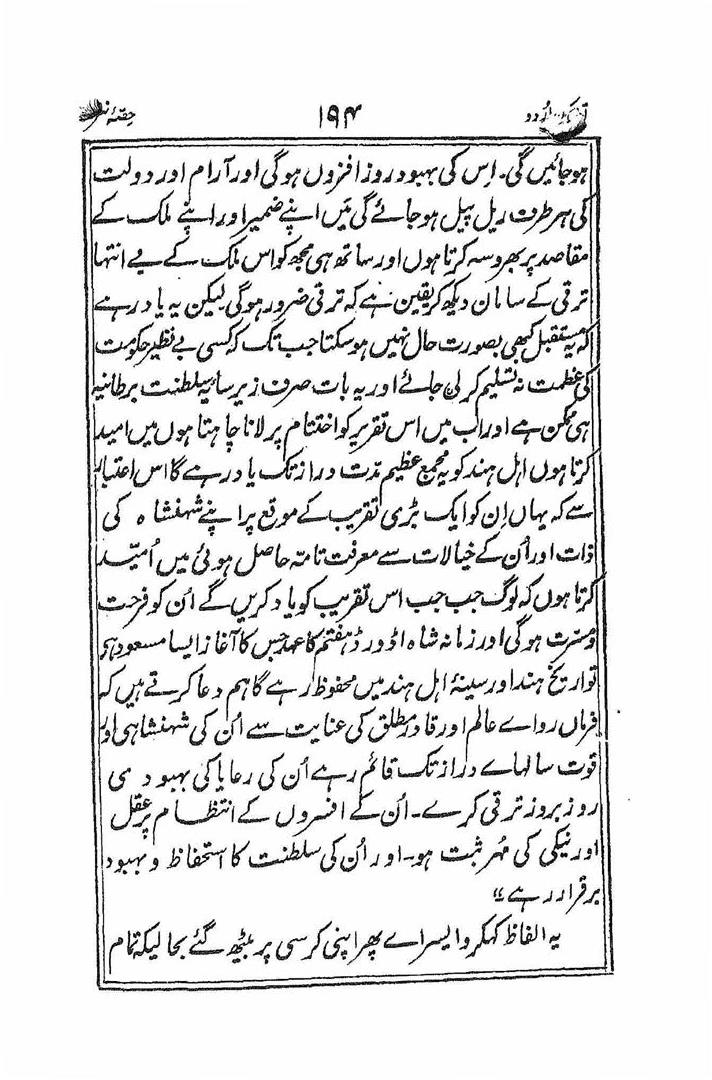 حصۂ نثر ۱۹۴ اردو
ہوجائیں گی۔ اِس کی بہبود روز افزوں ہوگی اور آرام اور دولت
کی ہر طرف ریل پیل ہوجائے گی مَیں اپنے ضمیر اور اپنے ملک کے
مقاصد پر بھروسہ کرتا ہوں اور ساتھ ہی مجھ کو اس ملک کے بے انتہا
ترقی کے سامان دیکھ کر یقین ہے کہ ترقی ضرور ہوگی لیکن یہ یاد رہے
کہ یہ مستقبل کبھی بصورت حال نہیں ہوسکتا جب تک کہ کسی بے نظیر حکومت
کی عظمت نہ تسلیم کرلی جائے اور یہ بات صرف زیر سایہ سلطنت برطانیہ
ہی ممکن ہے اور اب میں اس تقریر کو اختتام پر لانا چاہتا ہوں میں امید
کرتا ہوں اہل ہند کو یہ مجمع عظیم مدّت دراز تک یاد رہے گا اس اعتبار
سے کہ یہاں اِن کو ایک بڑی تقریب کے موقع پر اپنے شہنشاہ کی
ذات اور اُن کے خیالات سے معرفت تامّہ حاصل ہوئی میں اُمیّد
کرتا ہوں کہ لوگ جب جب اس تقریب کو یاد کریں گے اُن کو فرحت
و مسرّت ہوگی اور زمانہ شاہ اڈورڈ ہفتم کا عہد جس کا آغاز ایسا مسعود ہے
تواریخ ہند اور سینۂ اہل ہند میں محفوظ رہے گا ہم دعا کرتے ہیں کہ
فرماں رواے عالم اور قادر مطلق کی عنایت سے اُن کی شہنشاہی اور
قوت سالہاے دراز تک قائم رہے اُن کی رعایا کی بہبودی
روز بروز ترقی کرے۔ اُن کے افسروں کے انتظام پر عقل
اور نیکی کی مُہر ثبت ہو۔ اور اُن کی سلطنت کا استحفاظ و بہبود
برقرار رہے"
یہ الفاظ کہکر وایسراے پھر اپنی کرسی پر بیٹھ گئے بحالیکہ تمام